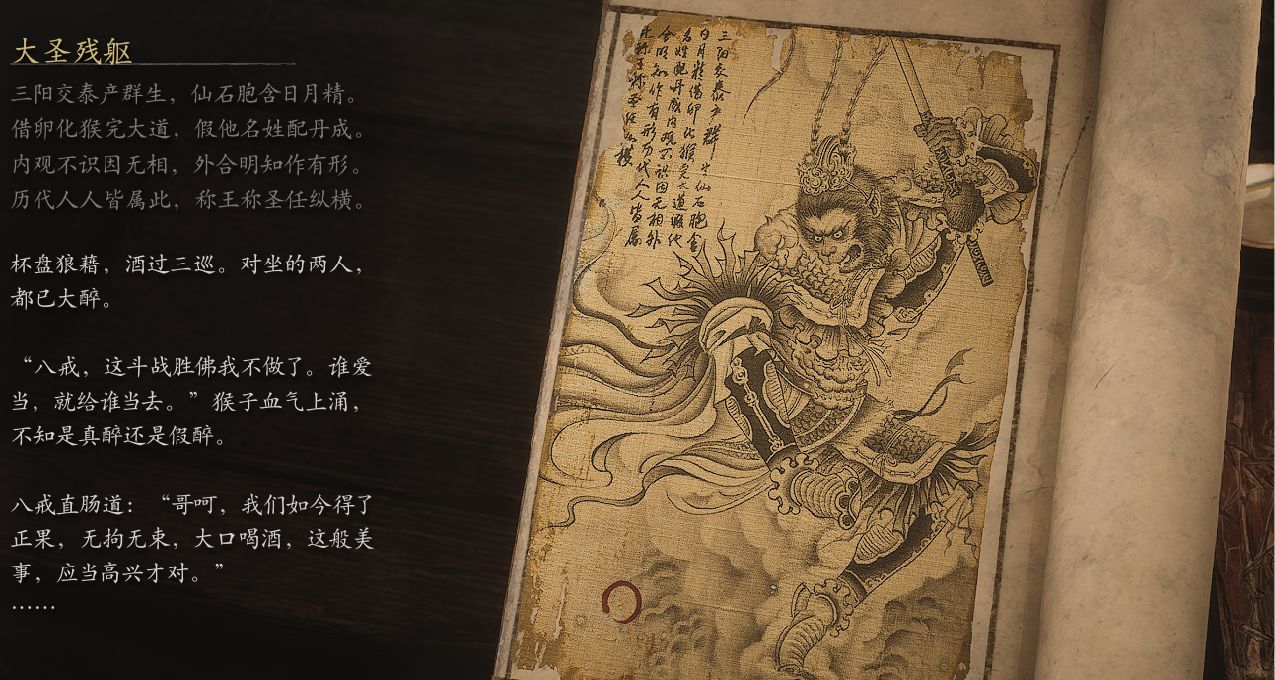 大圣残躯
三阳交泰产群生，仙石胞含日月精。
借卵化猴完大道，假他名姓配丹成。
内观不识因无相，外合明知作有形。
历代人人皆属此，称王称圣任纵横。
杯盘狼藉，酒过三巡。对坐的两人，
都已大醉。
“八戒，这斗战胜佛我不做了。谁爱
当，就给谁当去。”猴子血气上涌，
不知是真醉还是假醉。
八戒直肠道：“哥呵，我们如今得了
正果，无拘无束，大口喝酒，这般美
事，应当高兴才对。”
……
三阳交泰产群生仙石胞含
日月精借卵化猴完大道假他
名姓配丹成内观不识因无相外
合明知作有形历代人人皆属
此称王称圣任纵横